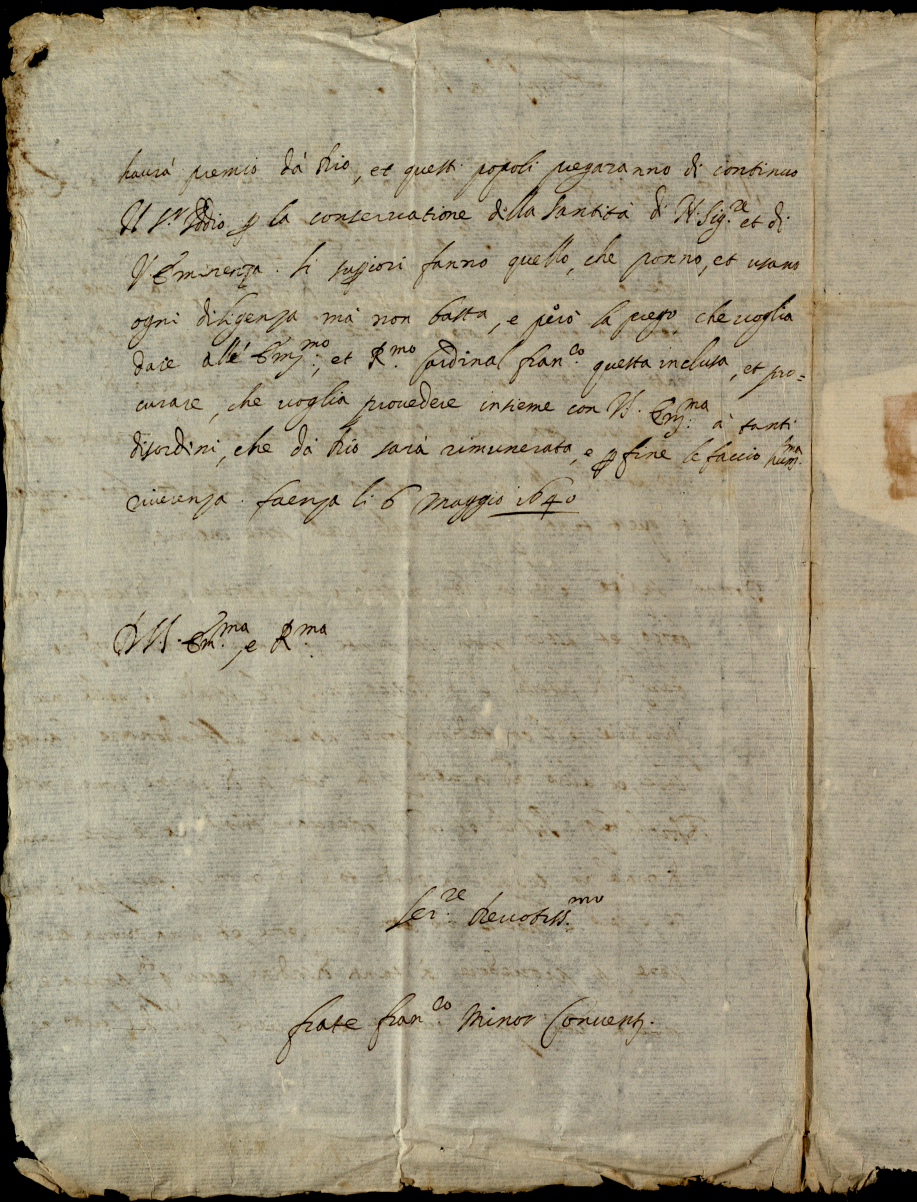 haurà premio dà Dio, et questi popoli pregaranno di continuo
N. Sr. Iddio p la conseruatione della Santità di N. Sig.re et di
V. Eminenza. Li supiori fanno quello, che ponno, et usano
ogni diligenza mà non basta, e però la prego, che uoglia
dare all' Em.mo, et R.mo Cardinal Fran.co questa inclusa, et pro=
curare, che uoglia prouedere insieme con V. Em.ma à tanti
disordini, che dà Dio sarà rimunerata, e p fine le faccio hum.ma
riuerenza. Faenza li 6 Maggio 1640
D. V. Em.ma, e R.ma
Ser.re Deuotiss.mo
frate Fran.co Minor Conuent.